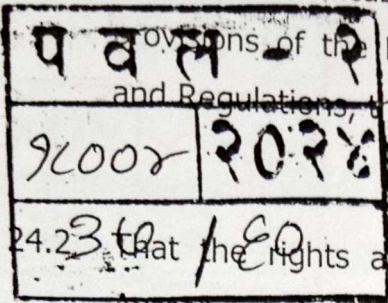 प व ल - २
ovisions of the
and Regulations,
२०२४
24.2 that the rights a